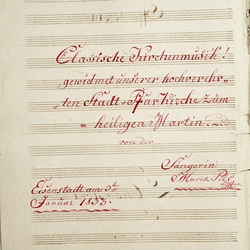 Classische Kirchenmusik!
gewidmet unserer hochverehr-
ten Stadt-Pfarkirche zum
heiligen Martin
von der
Sängerin
Maria
Eisenstadt am
Januar 1853.